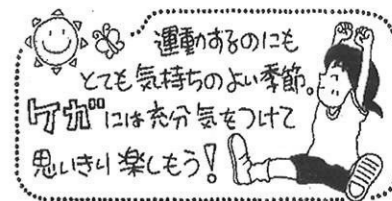 運動するのにも
とても気持ちのよい季節。
ケガには充分気をつけて
思いきり楽しもう!